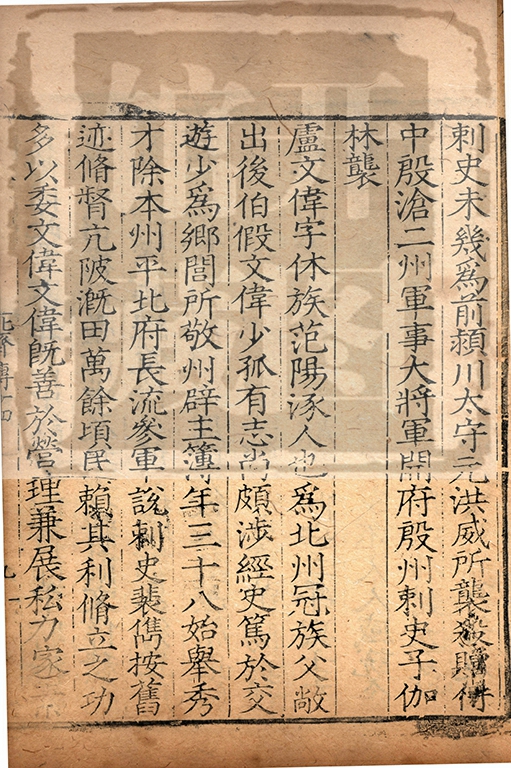 刺史未幾爲前潁川太守元洪威所襲殺贈侍
中殷滄二州軍事大將軍開府殷州刺史子伽
林襲
盧文偉字休族范陽涿人也爲北州冠族父敞
出後伯假文偉少孤有志尚頗涉經史篤於交
遊少爲鄉閭所敬州辟主簿年三十八始舉秀
才除本州平北府長流參軍說刺史裴儁按舊
迹脩督亢陂漑田萬餘頃民賴其利脩立之功
多以委文偉文偉旣善於營理兼展私力家
北齊傳十四
九